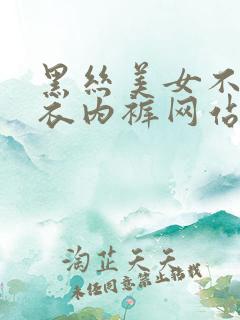 黑丝美女不
衣内裤网佔
淘芷天天
未经同意禁止转载